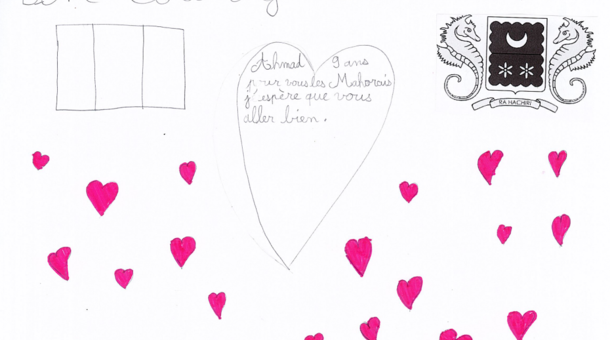 Ahmad 9 ans
pour vous les Mahorais
j'espère que vous
aller bien.
RA HACHIRI